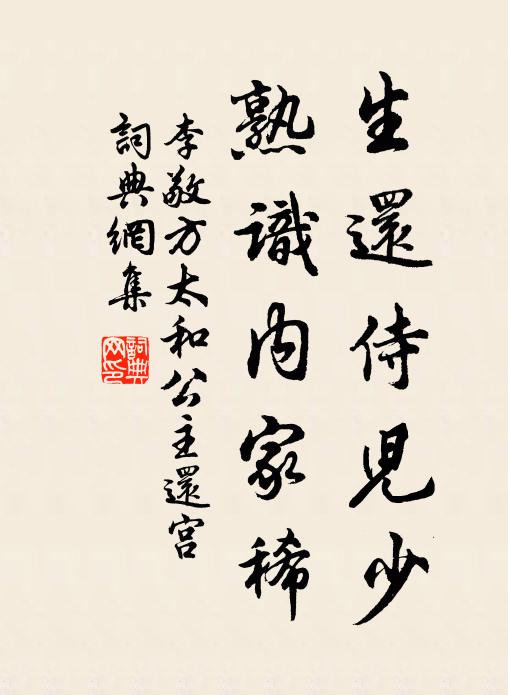 生還侍兒少
熟識內家稀
李敬方太和公主還宮
詞典網集
詞典網印